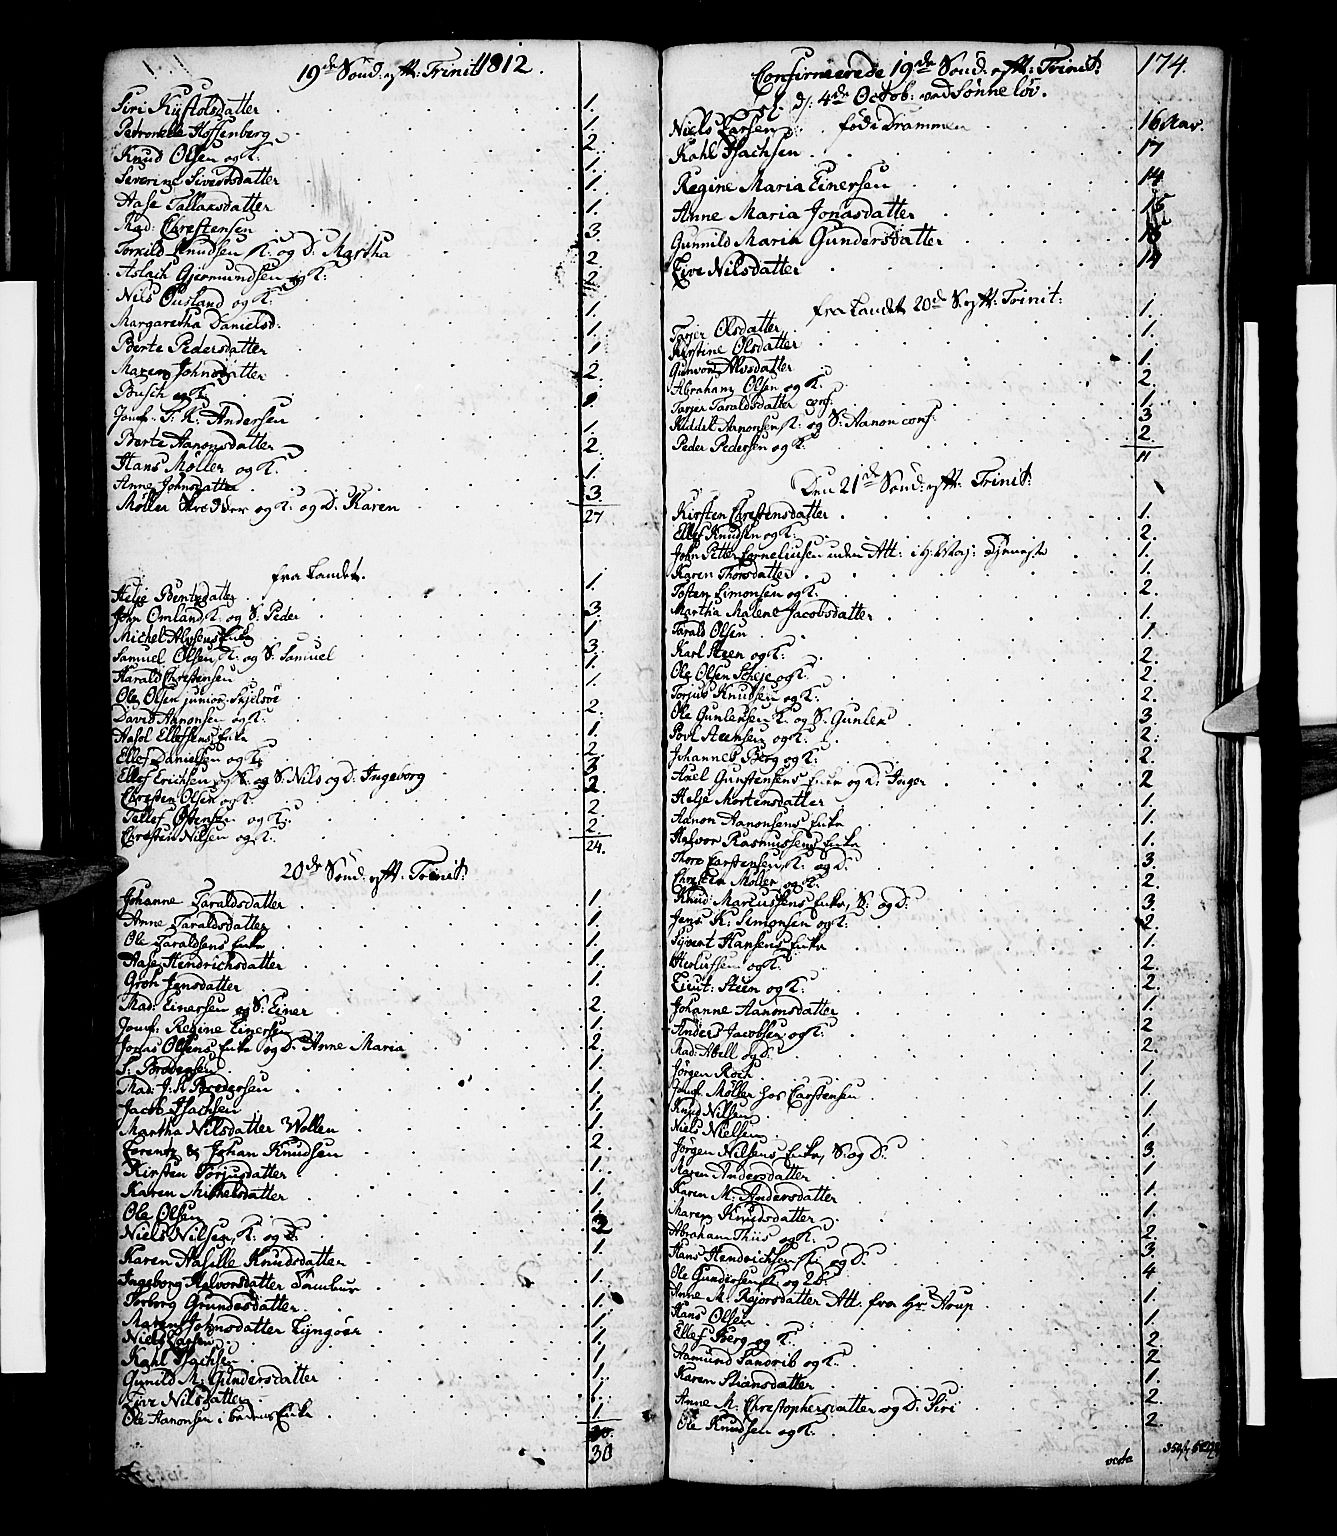 19de Sønd: eft: Trinit: 1812.
Siri Kistolsdatter 1.
Petronelle Hoffenberg 1.
Knud Olsen og K: 2.
Severine Sivertsdatter 1.
Aase Tallaksdatter 1.
Mad: Christensen 1.
Torkild Knudsen K: og D: Martha 3.
Aslach Gjermundsen og K: 2.
Nils Ousland og K: 2.
Margaretha Danielsd: 1.
Berte Pedersdatter 1.
Maren Johnsdatter 1.
Busch og K: 2.
Jomf: T. K: Andersen
Berte Aanonsdatter 1.
Hans Møller og K: 2.
Anne Johnsdatter 1.
Møller og K: og D: Karen 3.
27
fra Landet.
Helje Bentsdatter 1.
John Omland K: og S: Peder 3.
Michel Alvsens Enke 1.
Samuel Olsen K: og S: Samuel 3.
Harald Christensen 1.
Ole Olsen junior Skjelsøe 1.
David Aanonsen og K: 2.
Aasol Ellefsens Enke 1.
Ellef Danielsen og K: 2.
Ellef Erichsen og S: Nils og D: Ingeborg 3
Christen Olsen og K: 2.
Tellef Østensen og K: 2.
Christen Nilsen og K: 2.
24.
20de Sønd: eft: Trinit:
Johanne Taraldsdatter 1.
Anne Taraldsdatter 1.
Ole Taraldsens Enke 1.
Aase Hendrichsdatter 1.
Groe Jensdatter 1.
Mad: Einersen og S: Einer 2.
Jomf: Regine Einersen 1.
Jonas Olsens Enke og D: Anne Maria 2.
S: Brodersen 1.
Mad: J. K. Brodersen 1.
Jacob Isachsen 1.
Martha Nilsdatter Wollen 1.
Lorentz & Johan Knudsen 2.
Kirsten Torjusdatter 1.
Karen Michelsdatter 1.
Ole Olsen 1.
Niels Nilsen, K: og D: 3
Karen Aasille Knudsdatter 1.
Ingeborg Halvorsdatter Tambur 1.
Torborg Grundesdatter 1.
Maren Johnsdatter Lyngøer 1.
Niels Larsen 1.
Kahl Isachsen 1.
Gunild M. Gundersdatter 1.
Live Nilsdatter 1.
Ole Aanonsen i Enke 1.
30
Confirmerede 19de Sønd: eft: Trinit: 174.
d: 4de Octob: ved Sønneløv.
Niels Larsen føde i Drammen 16 Aar.
Kahl Isachsen 17
Regine Maria Einersen 14
Anne Maria Jonasdatter 15
Gunnild Maria Gundersdatter 15
Live Nilsdatter 14
fra Landet 20d S: eft: Trinit:
Tarjer Olsdatter 1.
Kirstine Olsdatter 1.
Gunvor Alvsdatter 1.
Abraham Olsen og K: 2.
Tarjer Taraldsdatter conf: 1.
Kiddel Aanonsen K: og S: Aanon conf: 3
Peder Pedersen og K: 2.
11
Den 21de Sønd: eft: Trinit:
Kirsten Christensdatter 1.
Ellef Knudsen og K: 2.
John Petter Corneliusen uden Att: i H: Maj: Tjeneste 1.
Karen Thorsdatter 1.
Tosten Simonsen og K: 2.
Martha Malene Jacobsdatter 1.
Tarald Olsen 1.
Karl Steen og K: 2.
Ole Olsen Scheje og K: 2.
Torjus Knudsen og K: 2.
Ole Gunlefsen K: og S: Gunlef 3.
Povl Aremsen og K: 2.
Johannes Berg og K: 2.
Axel Gunstensens Enke og D: Inger 2
Helje Mortensdatter 1.
Aanon Aanonsens Enke 1.
Halvor Rasmussens Enke 1.
Thore Carstensen, K: og D: 3.
Christen Møller og K: 2.
Knud Marcussens Enke, S: og D: 3.
Jens K: Simonsen og K: 2.
Sivert Hansens Enke 1.
Herlufsen og K: 2.
Lieut: Steen og K: 2.
Johanne Aanonsdatter 1.
Anders Jacobsen og K: 2.
Mad: Abell og D: 2.
Jørgen Roch 1.
Jomf: Møller hos Carstensen 1.
Knud Nilsen 1.
Niels Nielsen 1.
Jørgen Nilsens Enke, S: og D: 3.
Maren Andersdatter 1.
Karen M: Andersdatter 1.
Maren Knudsdatter 1.
Abraham Thiis og K: 2.
Hans Hendrichsen K: og D: 3.
Ole Gundersen K: og 2 D: 4
Anne M. Rejersdatter Att. fra Hr. Aarup 1.
Hans Olsen 1.
Ellef Berg og K: 2.
Aamund Sandvik og K: 2.
Karen Stiansdatter 1.
Anne M. Christophersdatter og D: Siri 2.
Ole Knudsen og K: 2.
verta